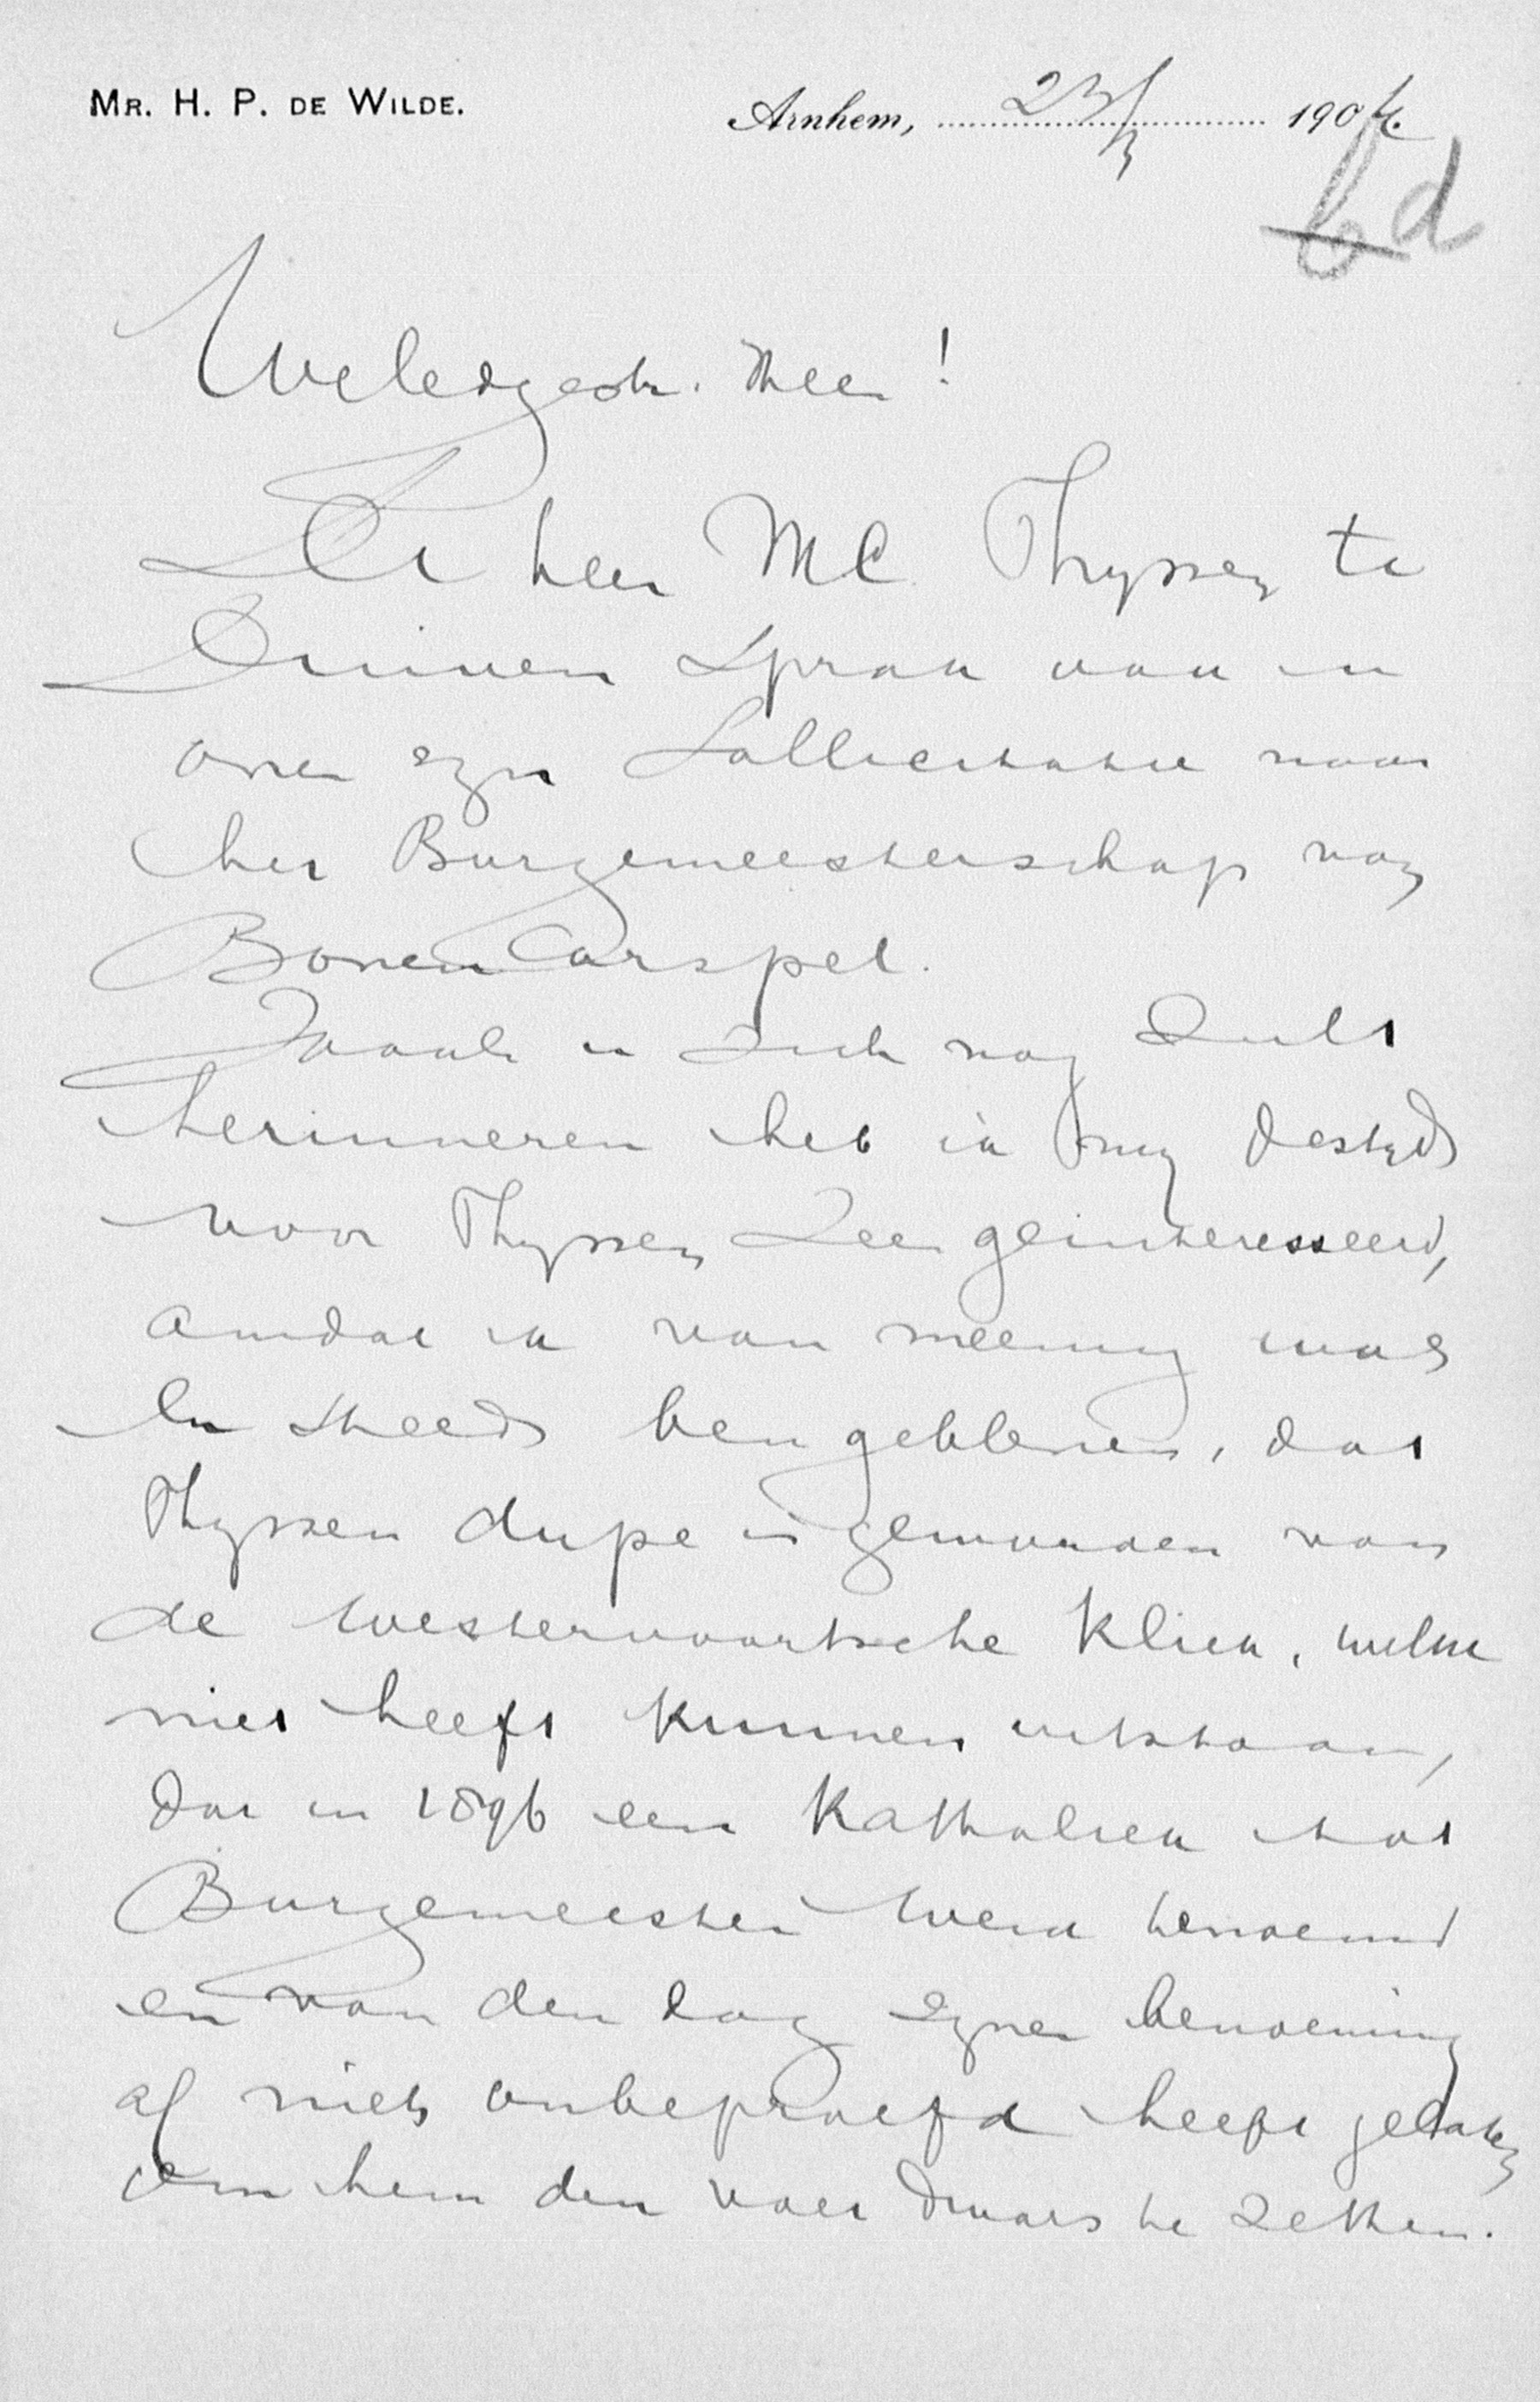 MR. H. P. DE WILDE.
Arnhem, 23/3 1904.
b d
Weledgestr. Heer!
De heer M C Thyssen te
Duiven sprak van u
over zyn Sollicitatie naar
het Burgemeesterschap van
Bovencarspel.
Zooals u zich nog zult
herinneren heb ik my destyds
voor Thyssen zeer geinteresseerd,
omdat ik van meening was
en steeds ben gebleven, dat
Thyssen dupe is geworden van
de Westervoortsche kliek, welke
niet heeft kunnen uitstaan,
dat in 1896 een Katholiek tot
Burgemeester werd benoemd
en van den dag zyner benoeming
af niets onbeproefd heeft gelaten
om hem den voet dwars te zetten.